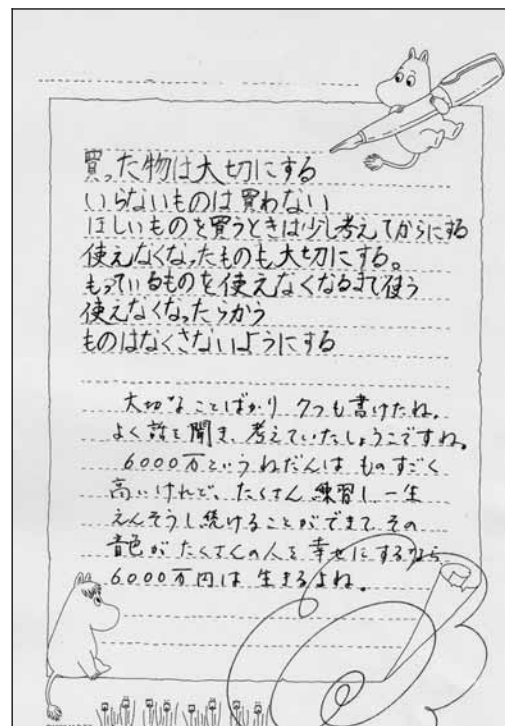 買った物は大切にする
いらないものは買わない
ほしいものを買うときは少し考えてからにする
使えなくなったものも大切にする。
もっているものを使えなくなるまで使う
使えなくなったらかう
ものはなくさないようにする
大切なことばかり 7つも書けたね。
よく話を聞き、考えていたしょうこですね。
6000万というねだんは ものすごく
高いけれど、たくさん 練習し 一生
えんそうし続けることができて その
音色が たくさんの人を 幸せにするなら
6000万円は 生きるよね。